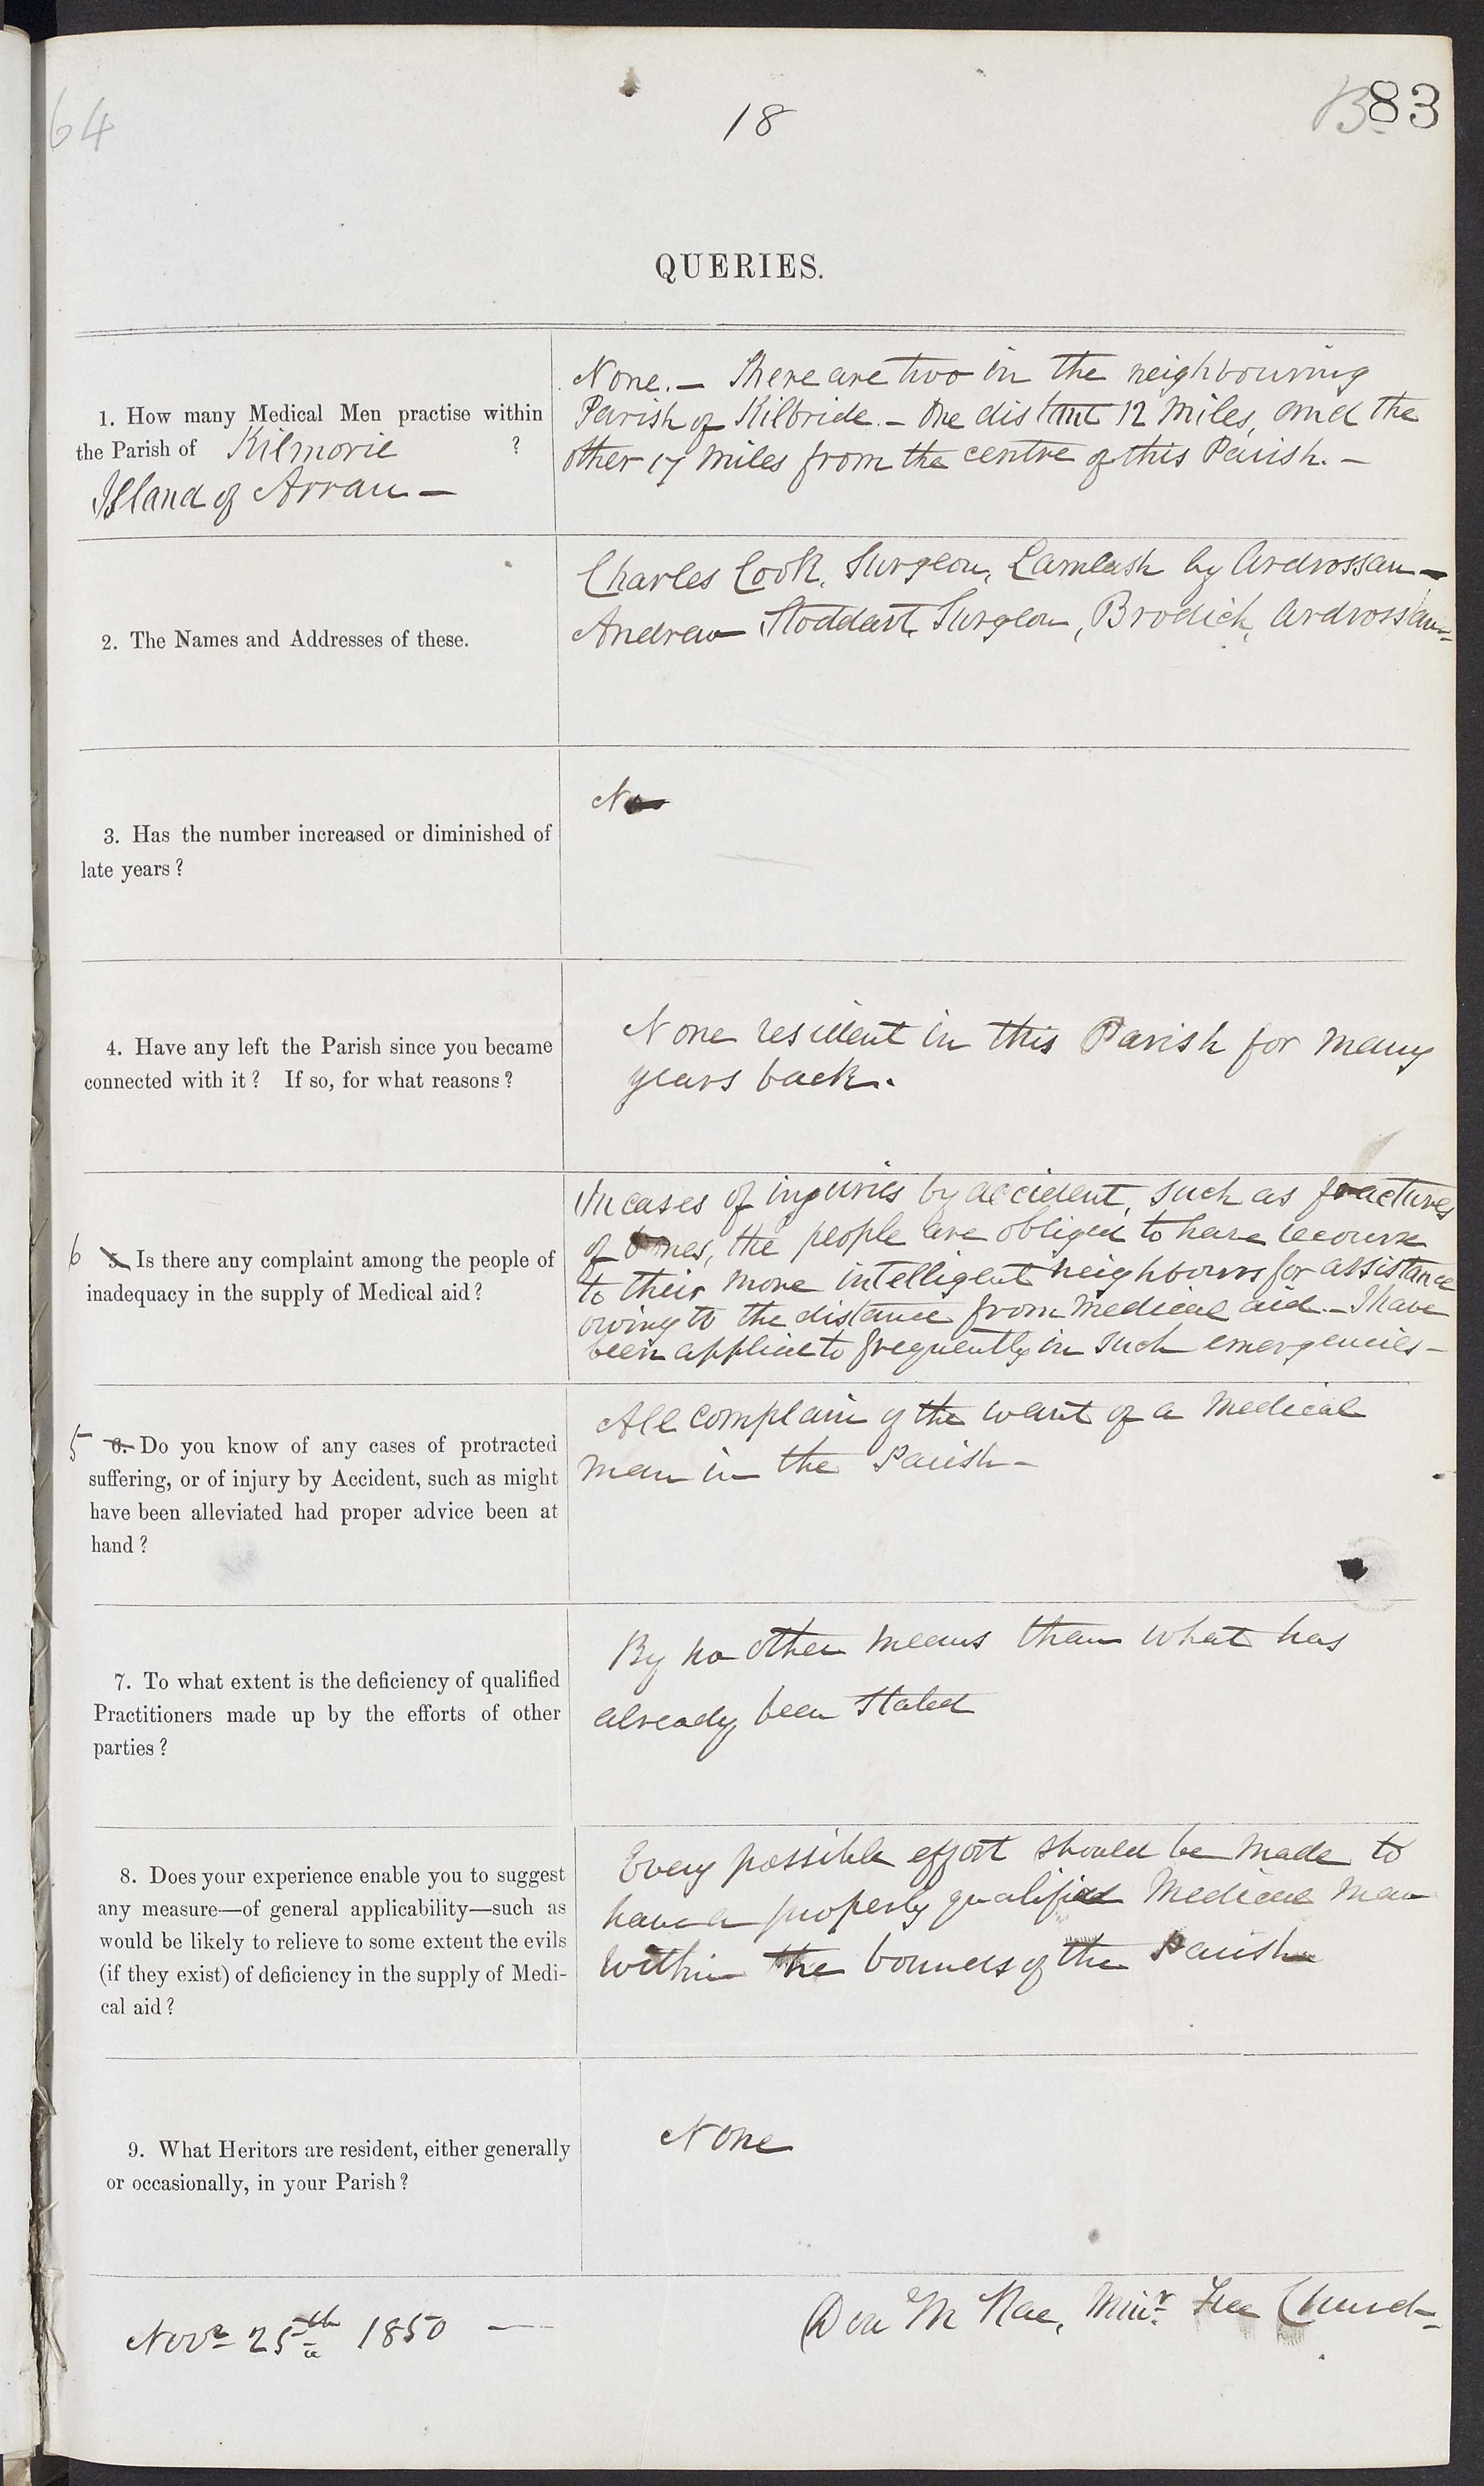 64
18
B. 83
QUERIES.
1. How many Medical Men practise within
the Parish of Kilmorie ?
Island of Arran —
None. — There are two in the neighbouring
Parish of Kilbride. — One distant 12 miles, and the
other 17 miles from the centre of this Parish. —
2. The Names and Addresses of these.
Charles Cook, Surgeon, Lamlash by Ardrossan —
Andrew Stoddart, Surgeon, Brodick, Ardrossan —
3. Has the number increased or diminished of
late years ?
No
4. Have any left the Parish since you became
connected with it ? If so, for what reasons ?
None resident in this Parish for many
years back.
6 5. Is there any complaint among the people of
inadequacy in the supply of Medical aid ?
In cases of injuries by accident, such as fractures
of bones, the people are obliged to have recourse
to their more intelligent neighbours for assistance
owing to the distance from medical aid. — I have
been applied to frequently in such emergencies —
5 6. Do you know of any cases of protracted
suffering, or of injury by Accident, such as might
have been alleviated had proper advice been at
hand ?
All complain of the want of a medical
man in the Parish —
7. To what extent is the deficiency of qualified
Practitioners made up by the efforts of other
parties ?
By no other means than what has
already been stated
8. Does your experience enable you to suggest
any measure—of general applicability—such as
would be likely to relieve to some extent the evils
(if they exist) of deficiency in the supply of Medi-
cal aid ?
Every possible effort should be made to
have a properly qualified Medical Man
within the bounds of the Parish
9. What Heritors are resident, either generally
or occasionally, in your Parish ?
None
Novr 25th 1850 —
Don McRae, Minr. Free Church —